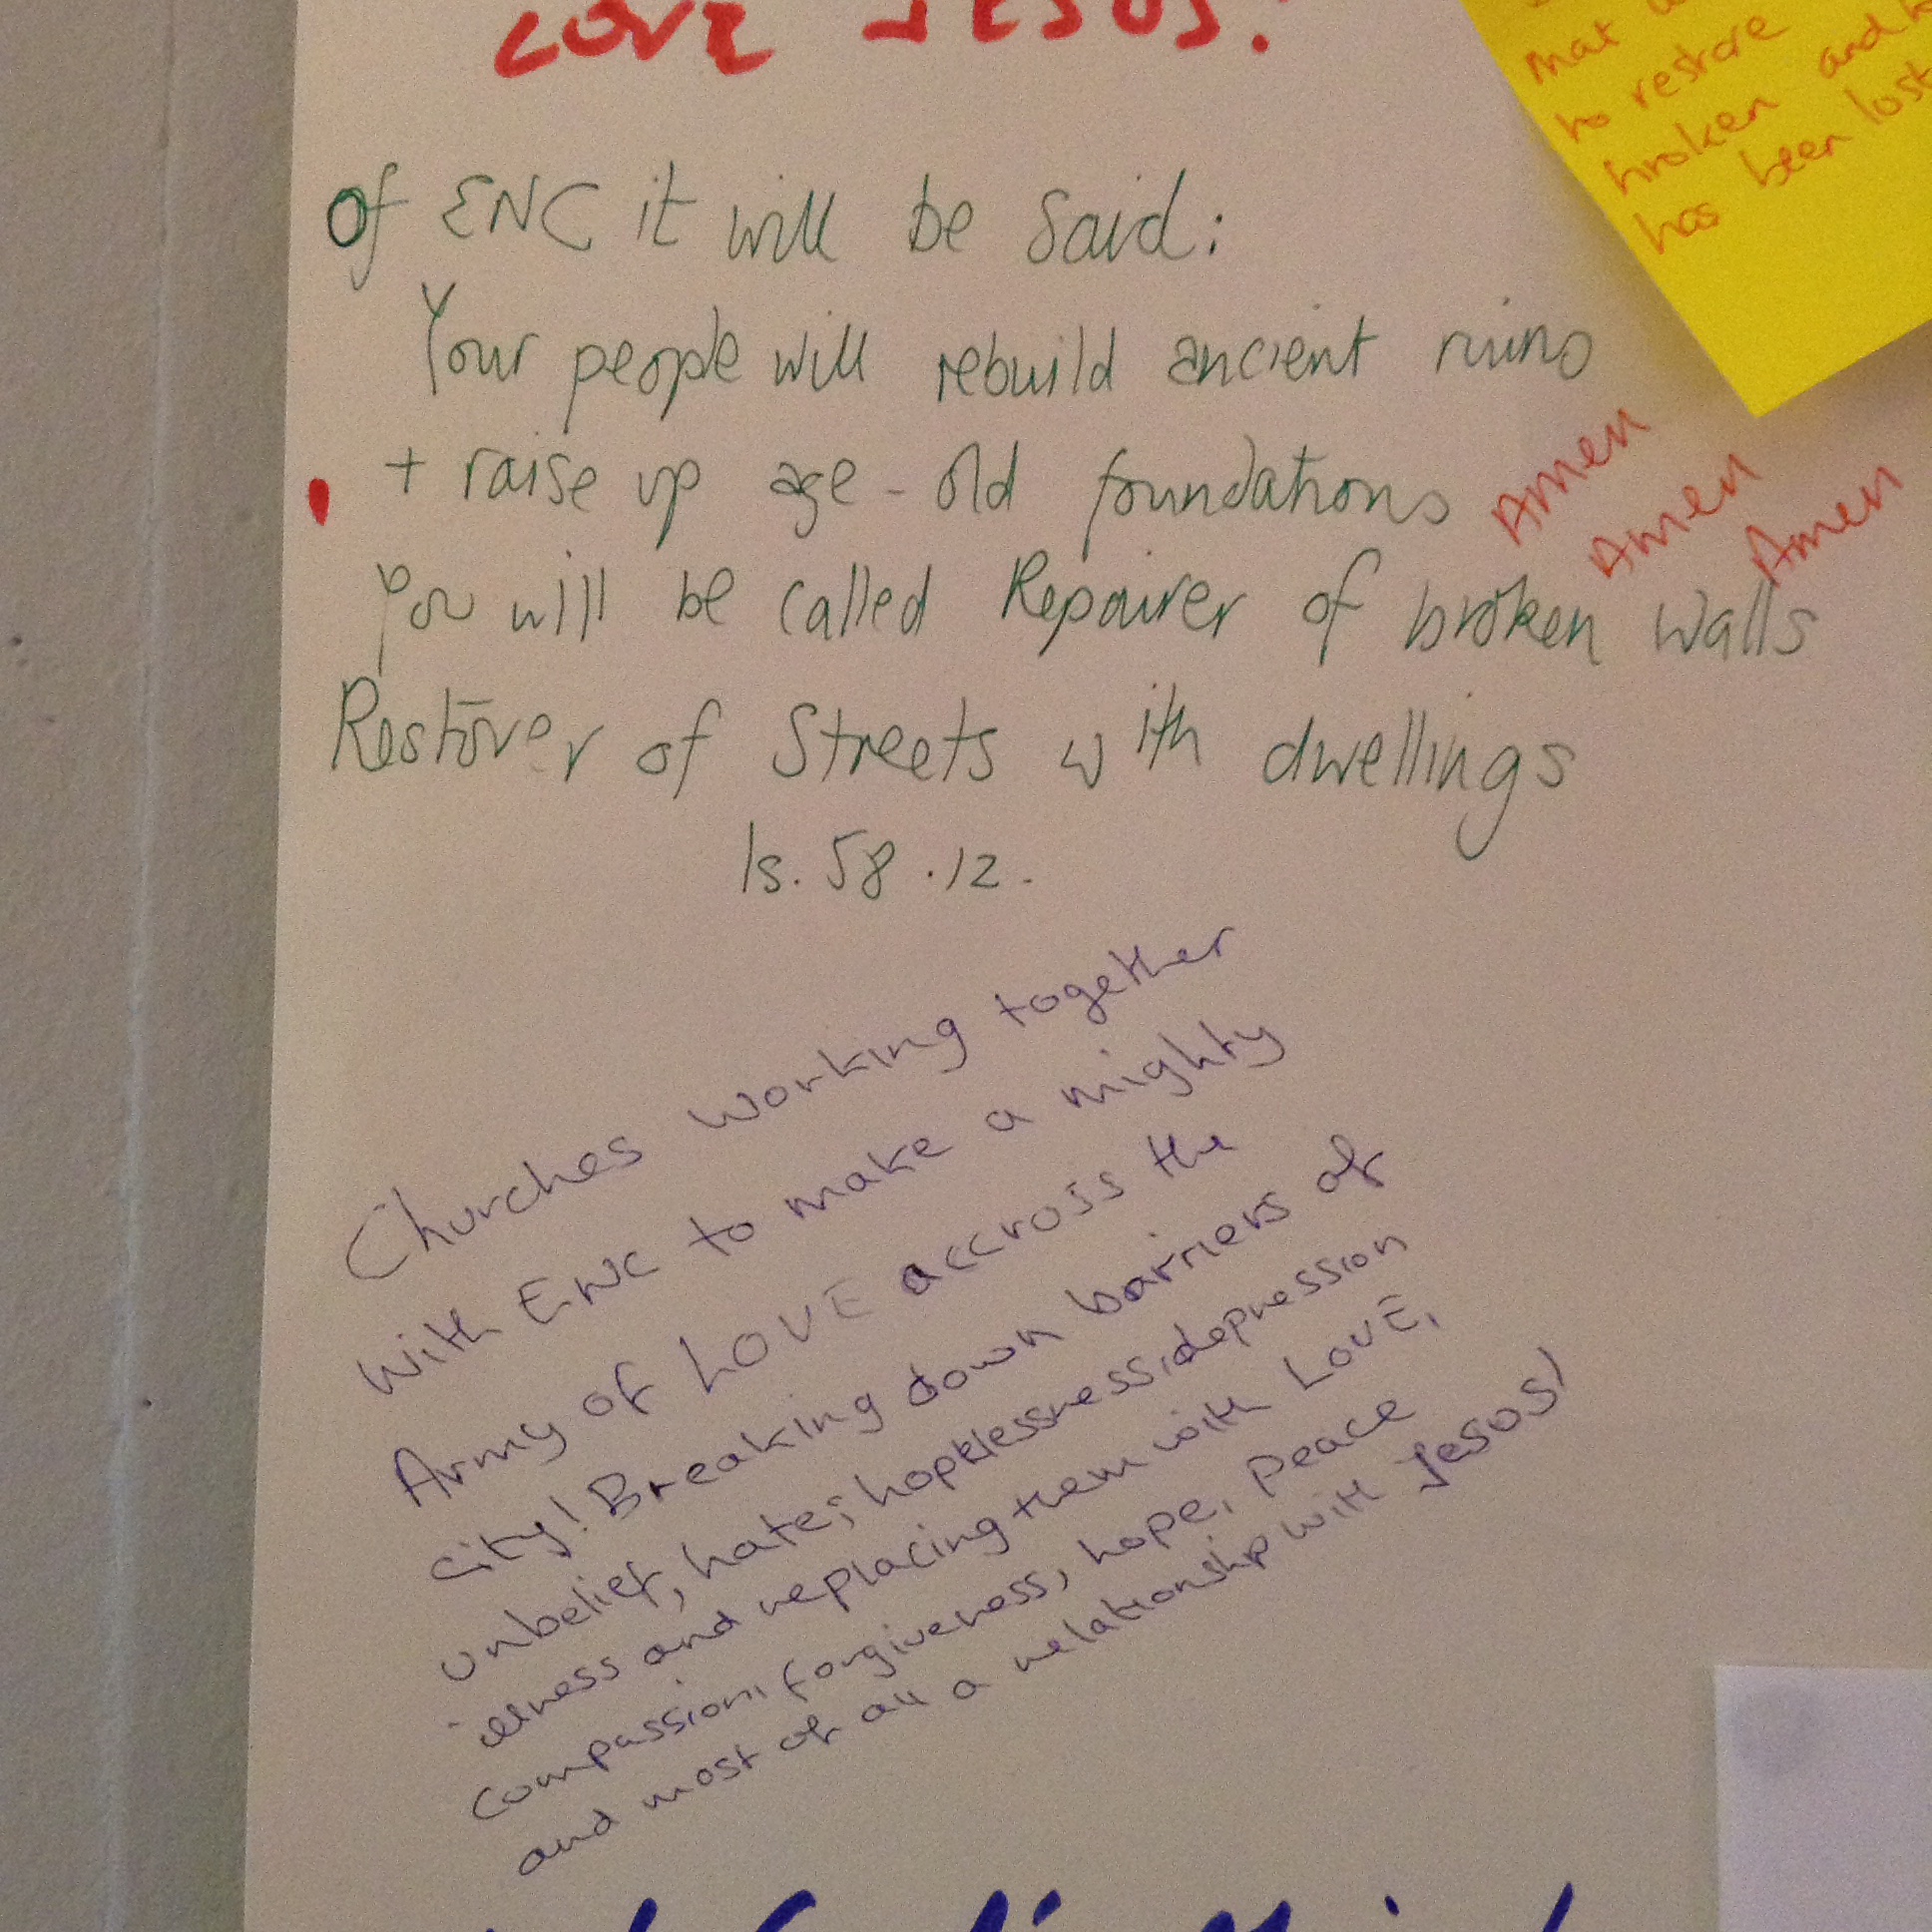 LOVE JESUS!
that
to restore
broken and
has been lost
Of ENC it will be said:
Your people will rebuild ancient ruins
+ raise up age-old foundations
Amen
Amen
Amen
you will be called Repairer of broken walls
Restorer of Streets with dwellings
Is. 58.12.
Churches working together
with ENC to make a mighty
Army of LOVE accross the
city! Breaking down barriers of
unbelief, hate, hopelessness, depression
illness and replacing them with LOVE,
compassion, forgiveness, hope, peace
and most of all a relationship with Jesus!